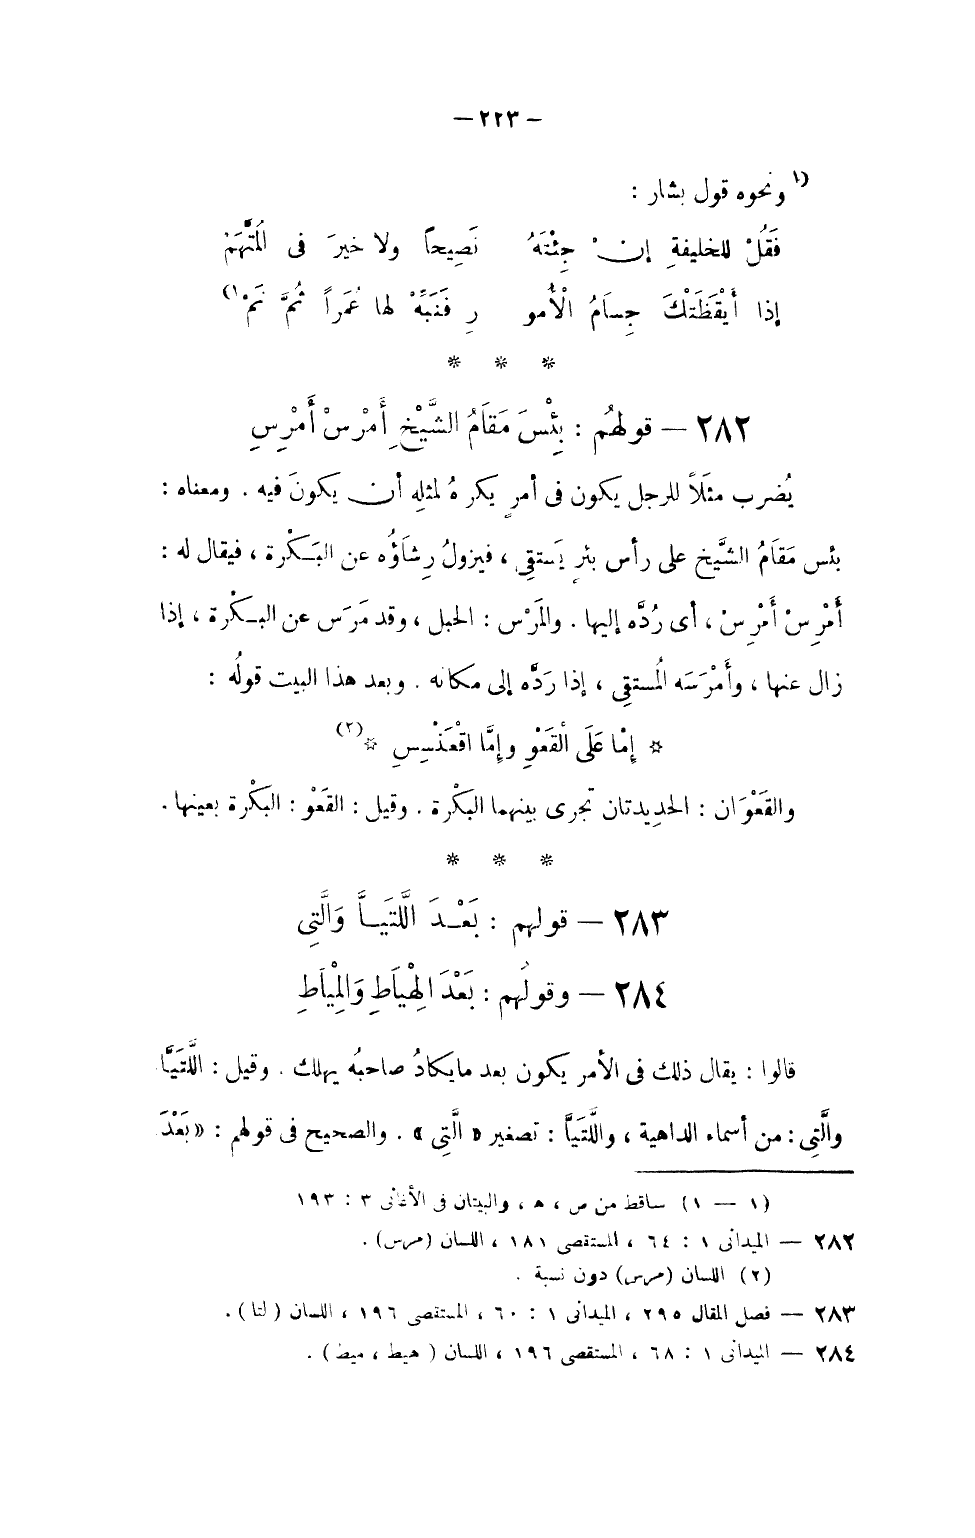 — ٢٢٣ —
(١ ونحوه قول بشار :
فَقُلْ للخليفةِ إن جِئْتَهُ نَصِيحًا ولا خيرَ فى المُتَّهَمْ
إذا أَيْقَظَتْكَ جِسَامُ الْأُمو رِ فَنَبِّهْ لها عُمَراً ثُمَّ نَمْ ١)
* * *
٢٨٢ — قولهُم : بِئْسَ مَقَامُ الشَّيْخِ أَمْرِسْ أَمْرِسِ
يُضرب مثلاً للرجل يكون فى أمرٍ يكرهُ لمثلِه أن يكونَ فيه . ومعناه :
بئس مَقَامُ الشَّيخ على رأس بئرٍ يَستقِى ، فيزولُ رِشَاؤُه عن البَكْرة ، فيقال له :
أَمْرِسْ أَمْرِسْ ، أى رُدَّه إليها . والمَرْس : الحبل ، وقد مَرَس عن البكْرة ، إذا
زال عنها ، وأَمْرَسَه المُستقِى ، إذا رَدَّه إلى مكانه . وبعد هذا البيت قولُه :
* إِمْا عَلَى الْقَعْوِ وإِمَّا اقْعَنْسِسِ * (٢)
والقَعْوَان : الحديدتان تجرى بينهما البَكْرة . وقيل : القَعْو : البَكْرة بعينها .
* * *
٢٨٣ — قولهم : بَعْدَ اللَّتَيَّا وَالَّتِى
٢٨٤ — وقولُهم : بَعْدَ الهْيِاَطِ وَالمْيِاَطِ
قالوا : يقال ذلك فى الأمر يكون بعد مايكادُ صاحبُه يهلك . وقيل : اللَّتَيَّا
والَّتِى : من أسماء الداهية ، واللَّتَيَّا : تصغير « الَّتِى » . والصحيح فى قولهم : « بَعْدَ
(١ — ١) ساقط من ص ، ه ، والبيتان فى الأغانى ٣ : ١٩٣
٢٨٢ — الميدانى ١ : ٦٤ ، المستقصى ١٨١ ، اللسان (مرس) .
(٢) اللسان (مرس) دون نسبة .
٢٨٣ — فصل المقال ٢٩٥ ، الميدانى ١ : ٦٠ ، المستقصى ١٩٦ ، اللسان ( لتا ) .
٢٨٤ — الميدانى ١ : ٦٨ ، المستقصى ١٩٦ ، اللسان ( هيط ، ميط ) .